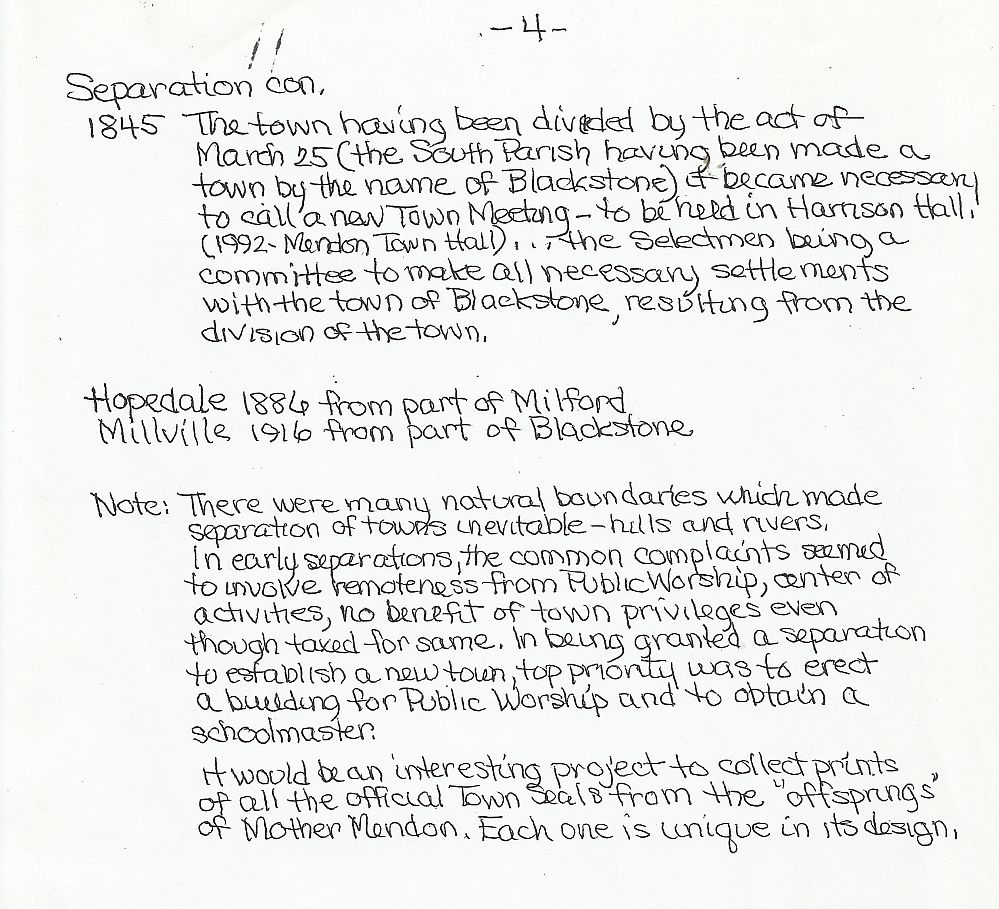 -4-
Separation con.
1845 The town having been divided by the act of
March 25 (the South Parish having been made a
town by the name of Blackstone) it became necessary
to call a new Town Meeting - to be held in Harrison Hall.
(1992 - Mendon Town Hall) . . . the Selectmen being a
committee to make all necessary settlements
with the town of Blackstone, resulting from the
division of the town.
Hopedale 1886 from part of Milford
Millville 1916 from part of Blackstone
Note: There were many natural boundaries which made
separation of towns inevitable - hills and rivers.
In early separations, the common complaints seemed
to involve remoteness from Public Worship, center of
activities, no benefit of town privileges even
though taxed for same. In being granted a separation
to establish a new town, top priority was to erect
a building for Public Worship and to obtain a
schoolmaster.
It would be an interesting project to collect prints
of all the official Town Seals from the "offsprings"
of Mother Mendon. Each one is unique in its design.